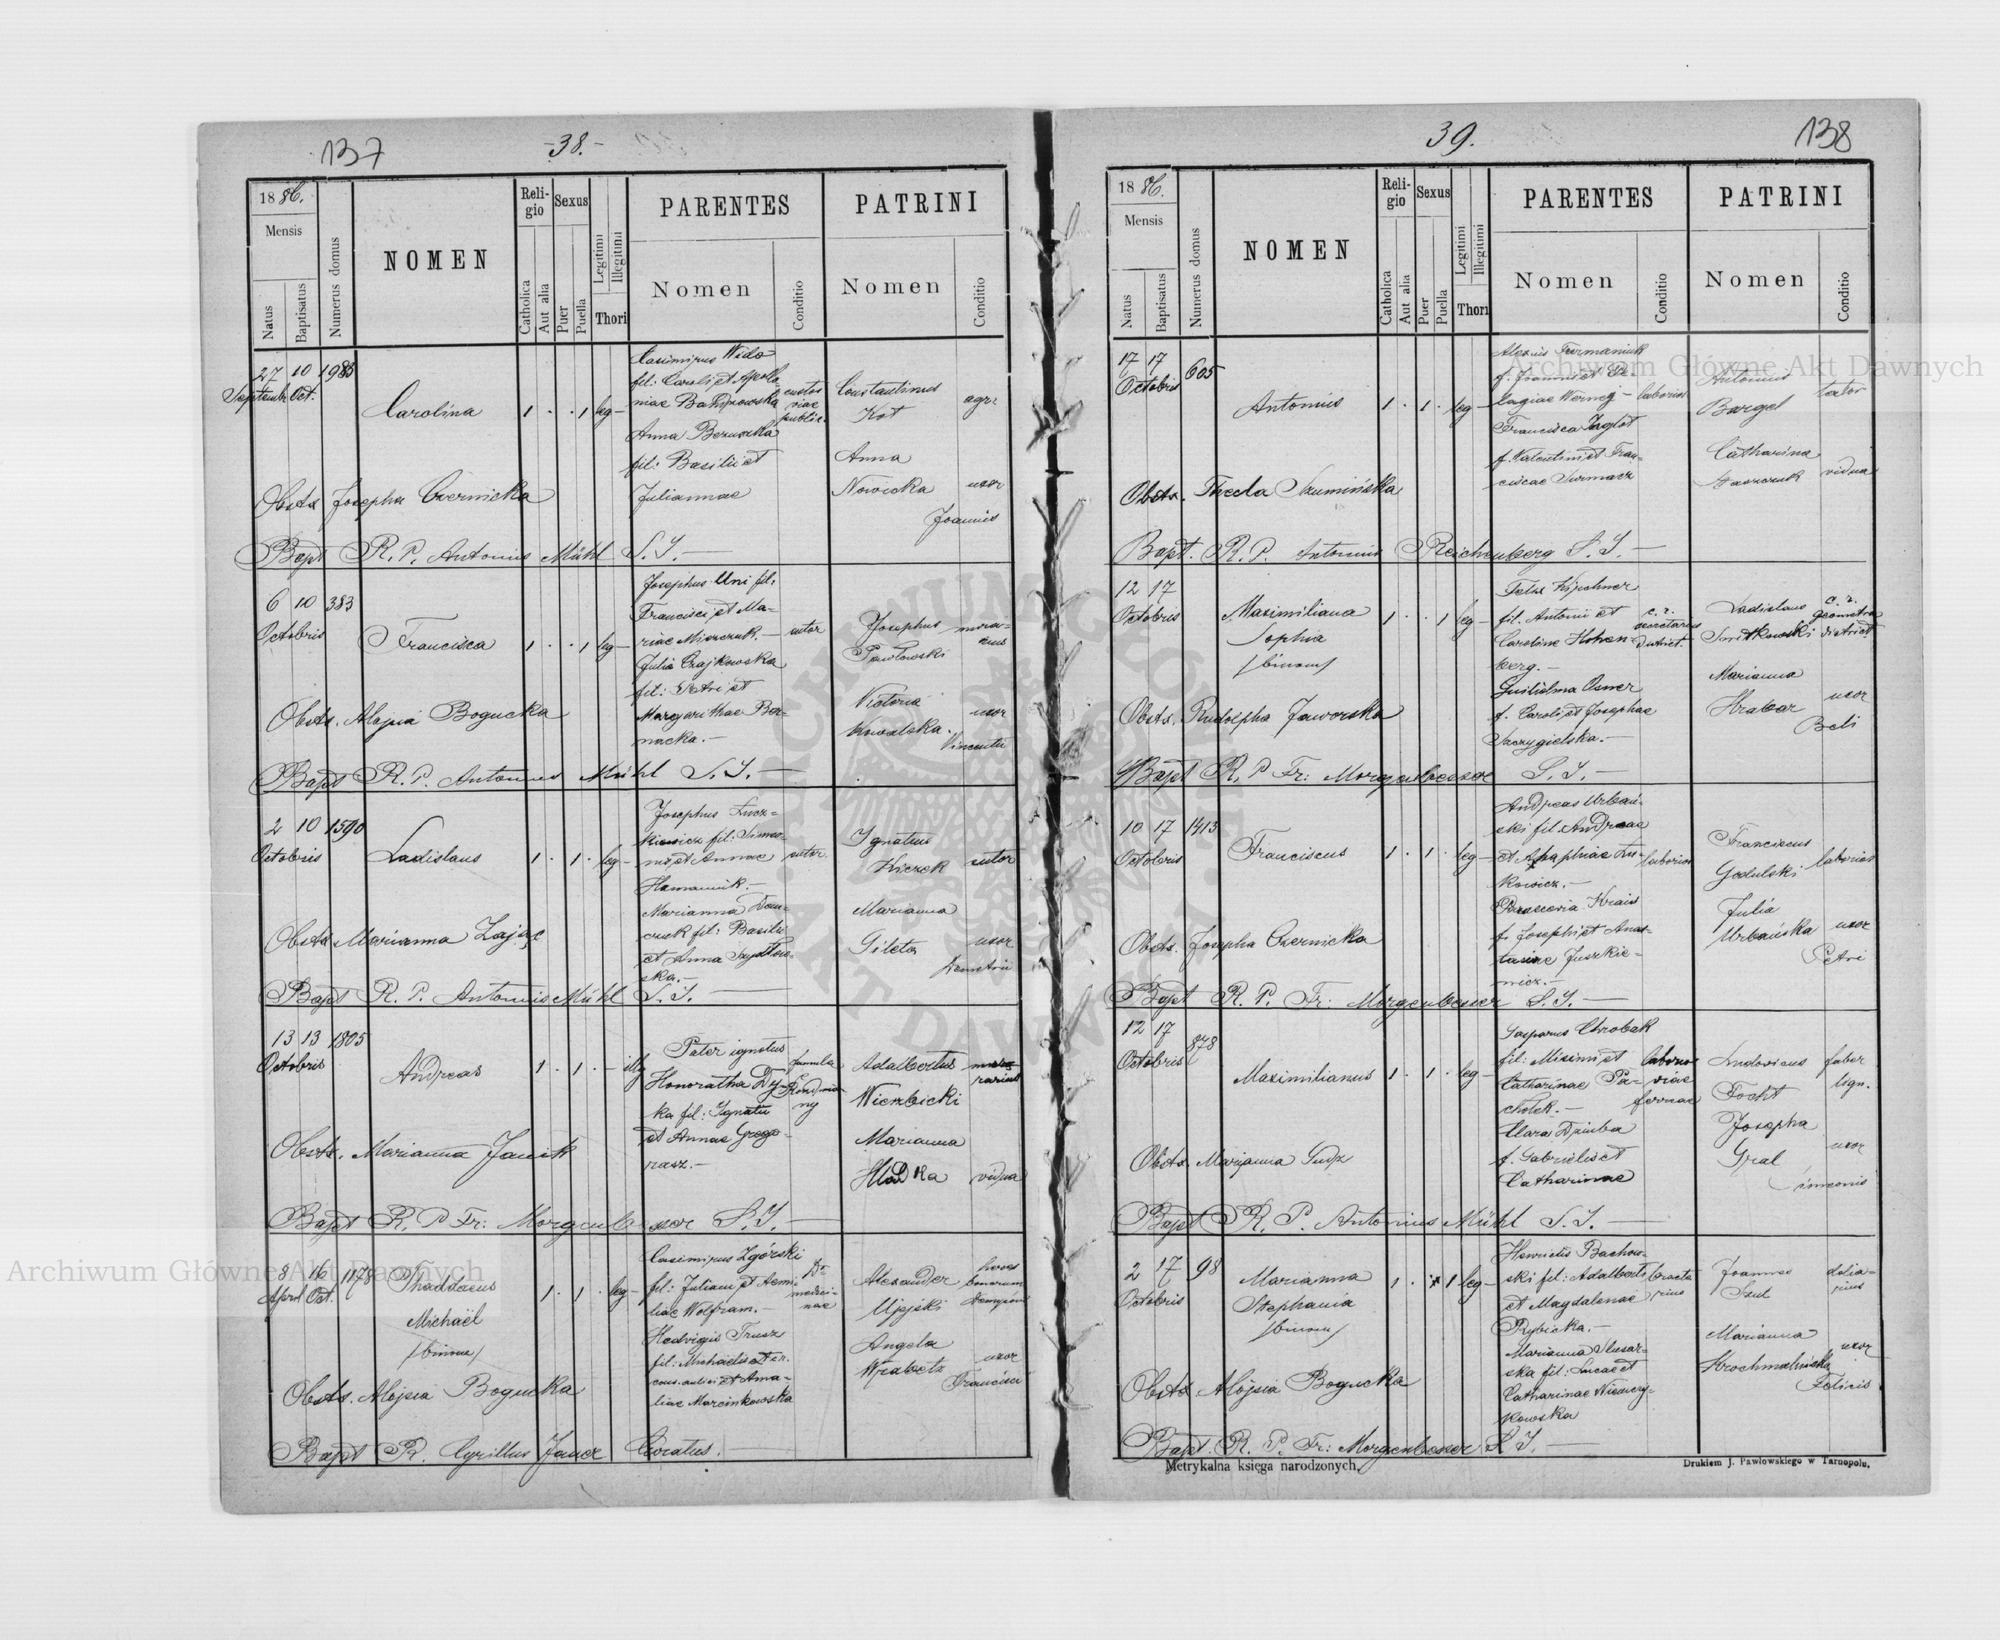 137
-38.-
1886.
Mensis
Natus
Baptisatus
Numerus domus
NOMEN
Religio
Catholica
Aut alia
Sexus
Puer
Puella
Legitimi
Illegitimi
Thori
PARENTES
Nomen
Conditio
PATRINI
Nomen
Conditio
27 10 1985
Septemb. Oct.
Carolina 1 . . 1 leg-
Casimirus Wido
fil: Caroli et Apollo-
niae
Anna
fil: Basilii et
Juliannae
custos
viae
public.
Constantinus
Kot
agr:
Anna
Nowicka uxor
Joannis
Obsts Josepha Czernicka
Bapt R. P. Antonius Mühl S. J. —
6 10 383
Octobris
Francisca 1 . . 1 leg-
Josephus Uni fil:
Francisci et Ma-
riae Miarczuk. - sutor
Julia Czajkowska
fil: Petri et
Margarithae Ber-
nacka. -
Josephus
Pawłowski
Victoria uxor
Kowalska. Vincentii
Obsts. Alojsia Bogucka
Bapt R. P. Antonius Mühl S. J. —
2 10 1590
Octobris
Ladislaus 1 . 1 . leg-
Josephus Łucz-
kiewicz fil: Simeo-
nis et Annae sutor
Marianna Dem-
czuk fil: Basilii
et Anna
ska. -
Ignatius
Kiczek sutor
Marianna
Gileta uxor
Demetrii
Obsts Marianna Zając
Bapt R. P. Antonius Mühl S. J. —
13 13 1805
Octobris
Andreas 1 . 1 . - illg
Pater ignotus
Honoratha Dy-
ka fil: Ignatii
et Annae Grego-
rasz. -
famula
Adalbertus
Wierzbicki
Marianna
Hladka vidua
Obsts. Marianna Janik
Bapt R. P Fr: Morgenbesser S. J. —
8 16 1178
April Oct.
Thaddaeus
Michaël
/binom/
1 . 1 . leg-
Casimirus Zgórski
fil: Juliani et Aemi-
liae Wolfram. -
Hedvigis Trusz
fil: Michaelis et
cons. aulici et Ama-
liae Marcinkowska
Dr
medici-
nae
Alexander
Ujejski
heres
bonorum
Angela
Wrabetz uxor
Francisci
Obsts. Alojsia Bogucka
Bapt R. Cyrillus Jauer Curatus.
39.
138
1886.
Mensis
Natus
Baptisatus
Numerus domus
NOMEN
Religio
Catholica
Aut alia
Sexus
Puer
Puella
Legitimi
Illegitimi
Thori
PARENTES
Nomen
Conditio
PATRINI
Nomen
Conditio
17 17 605
Octobris
Antonius 1 . 1 . leg-
Alexius Furmaniuk
f. Joannis et Pe-
lagiae - laborios
Francisca Jaglot
f. Valentini et Fran-
ciscae Surmacz
Antonius
Bargel
Catharina
Staszczuk vidua
Obsts. Thecla Szumińska
Bapt. R. P. Antonius Reichenberg S. J. —
12 17
Octobris
Maximiliana
Sophia
/binom/
1 . . 1 leg-
Felix Kirchner
fil. Antoni et
Caroline Hohen-
berg. -
Guilielma Osner
f. Caroli et Josephae
Szczygielska. -
c. r.
secretarius
district.
Ladislaus
Smitkowski
c. r.
geometra
district.
Marianna
Hrabar uxor
Obsts. Rudolpha Jaworska
Bapt R. P Fr: Morgenbesser S. J. —
10 17 1413
Octobris
Franciscus 1 . 1 . leg-
Andreas Urbań-
ski fil: Andreae
et Agaphiae Łu-
kowicz. - laborios
Parascevia Krais
f. Josephi et Anas-
tasiae Juszkie-
wicz. -
Franciscus
Godulski laborios
Julia
Urbańska uxor
Petri
Obsts. Josepha Czernicka
Bapt R. P. Fr: Morgenbesser S. J. —
12 17 878
Octobris
Maximilianus 1 . 1 . leg-
Gasparus Chrobak
fil:
Catharinae Pa-
chołek. -
Clara Dziuba
f. Gabrielis et
Catharinae
viae
ferreae
Ludovicus faber
Focht lign.
Josepha
Gral uxor
Simeonis
Obsts. Marijanna Gudz
Bapt R. P. Antonius Mühl S. J. —
2 17 98
Octobris
Marianna
Stephania
/binom/
1 . 1 leg-
Henricus Bachow-
ski fil: Adalberti
et Magdalenae
Rybicka. -
Marianna Slusar-
ska fil: Lucae et
Catharinae Niemczy-
kowska
Joannes
Szul
dolia-
rius
Marianna
Krochmalnicka uxor
Felicis
Obsts Alojsia Bogucka
Bapt. R. P. Fr: Morgenbesser S J. —
Metrykalna księga narodzonych.
Drukiem J. Pawłowskiego w Tarnopolu.
Archiwum Główne Akt Dawnych
Archiwum Główne Akt Dawnych
ARCHIWUM GŁÓWNE AKT DAWNYCH